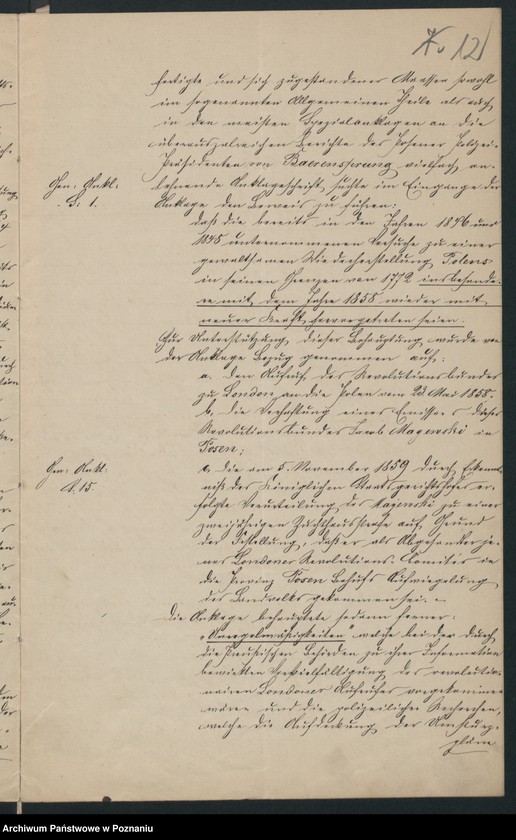 12
fertigte und sich zugestandener Maassen sowohl
im sogenannten Allgemeinen Theile als auch
in den meisten Spezialanklagen an die
überaus zahlreichen Berichte des Posener Polizei-
Präsidenten von Baerensprung vielfach an-
lehnende Anklageschrift, suchte im Eingange der
Gen: Ankl:
S. 1.
Anklage den Beweis zu führen:
daß die bereits in den Jahren 1846 und
1848 unternommenen Versuche zu einer
gewaltsamen Wiederherstellung Polens
in seinen Grenzen von 1772 insbesonde-
re mit dem Jahre 1858 wieder mit
neuer Kraft hervorgetreten seien.
Zur Unterstützung dieser Behauptung wurde von
der Anklage Bezug genommen auf:
a. den Aufruf des Revolutionsbundes
zu London an die Polen vom 23 Mai 1858.
b, die Verhaftung eines Emissars dieses
Revolutionsbundes Jacob Majewski in
Posen;
Gen: Ankl:
S. 15.
c. die am 5. November 1859 durch Erkennt-
niß des Königlichen Staatsgerichtshofes er-
folgte Verurteilung des Majewski zu einer
zweijährigen Zuchthausstrafe auf Grund
der Feststellung, daß er als Abgesandter je-
nes Londoner Revolutions-Comités in
die Provinz Posen Behufs Aufwiegelung
des Landvolks gekommen sei. –
Die Anklage behauptete sodann ferner:
"Unregelmäßigkeiten" welche bei der durch
die Preußischen Behörden zu ihrer Information
bewirkten Vervielfältigung des revolutio-
nairen Londoner Aufrufes vorgekommen
wären und die polizeilichen Recherchen,
welche die Aufdeckung der Umsturz-
pläne
Archiwum Państwowe w Poznaniu